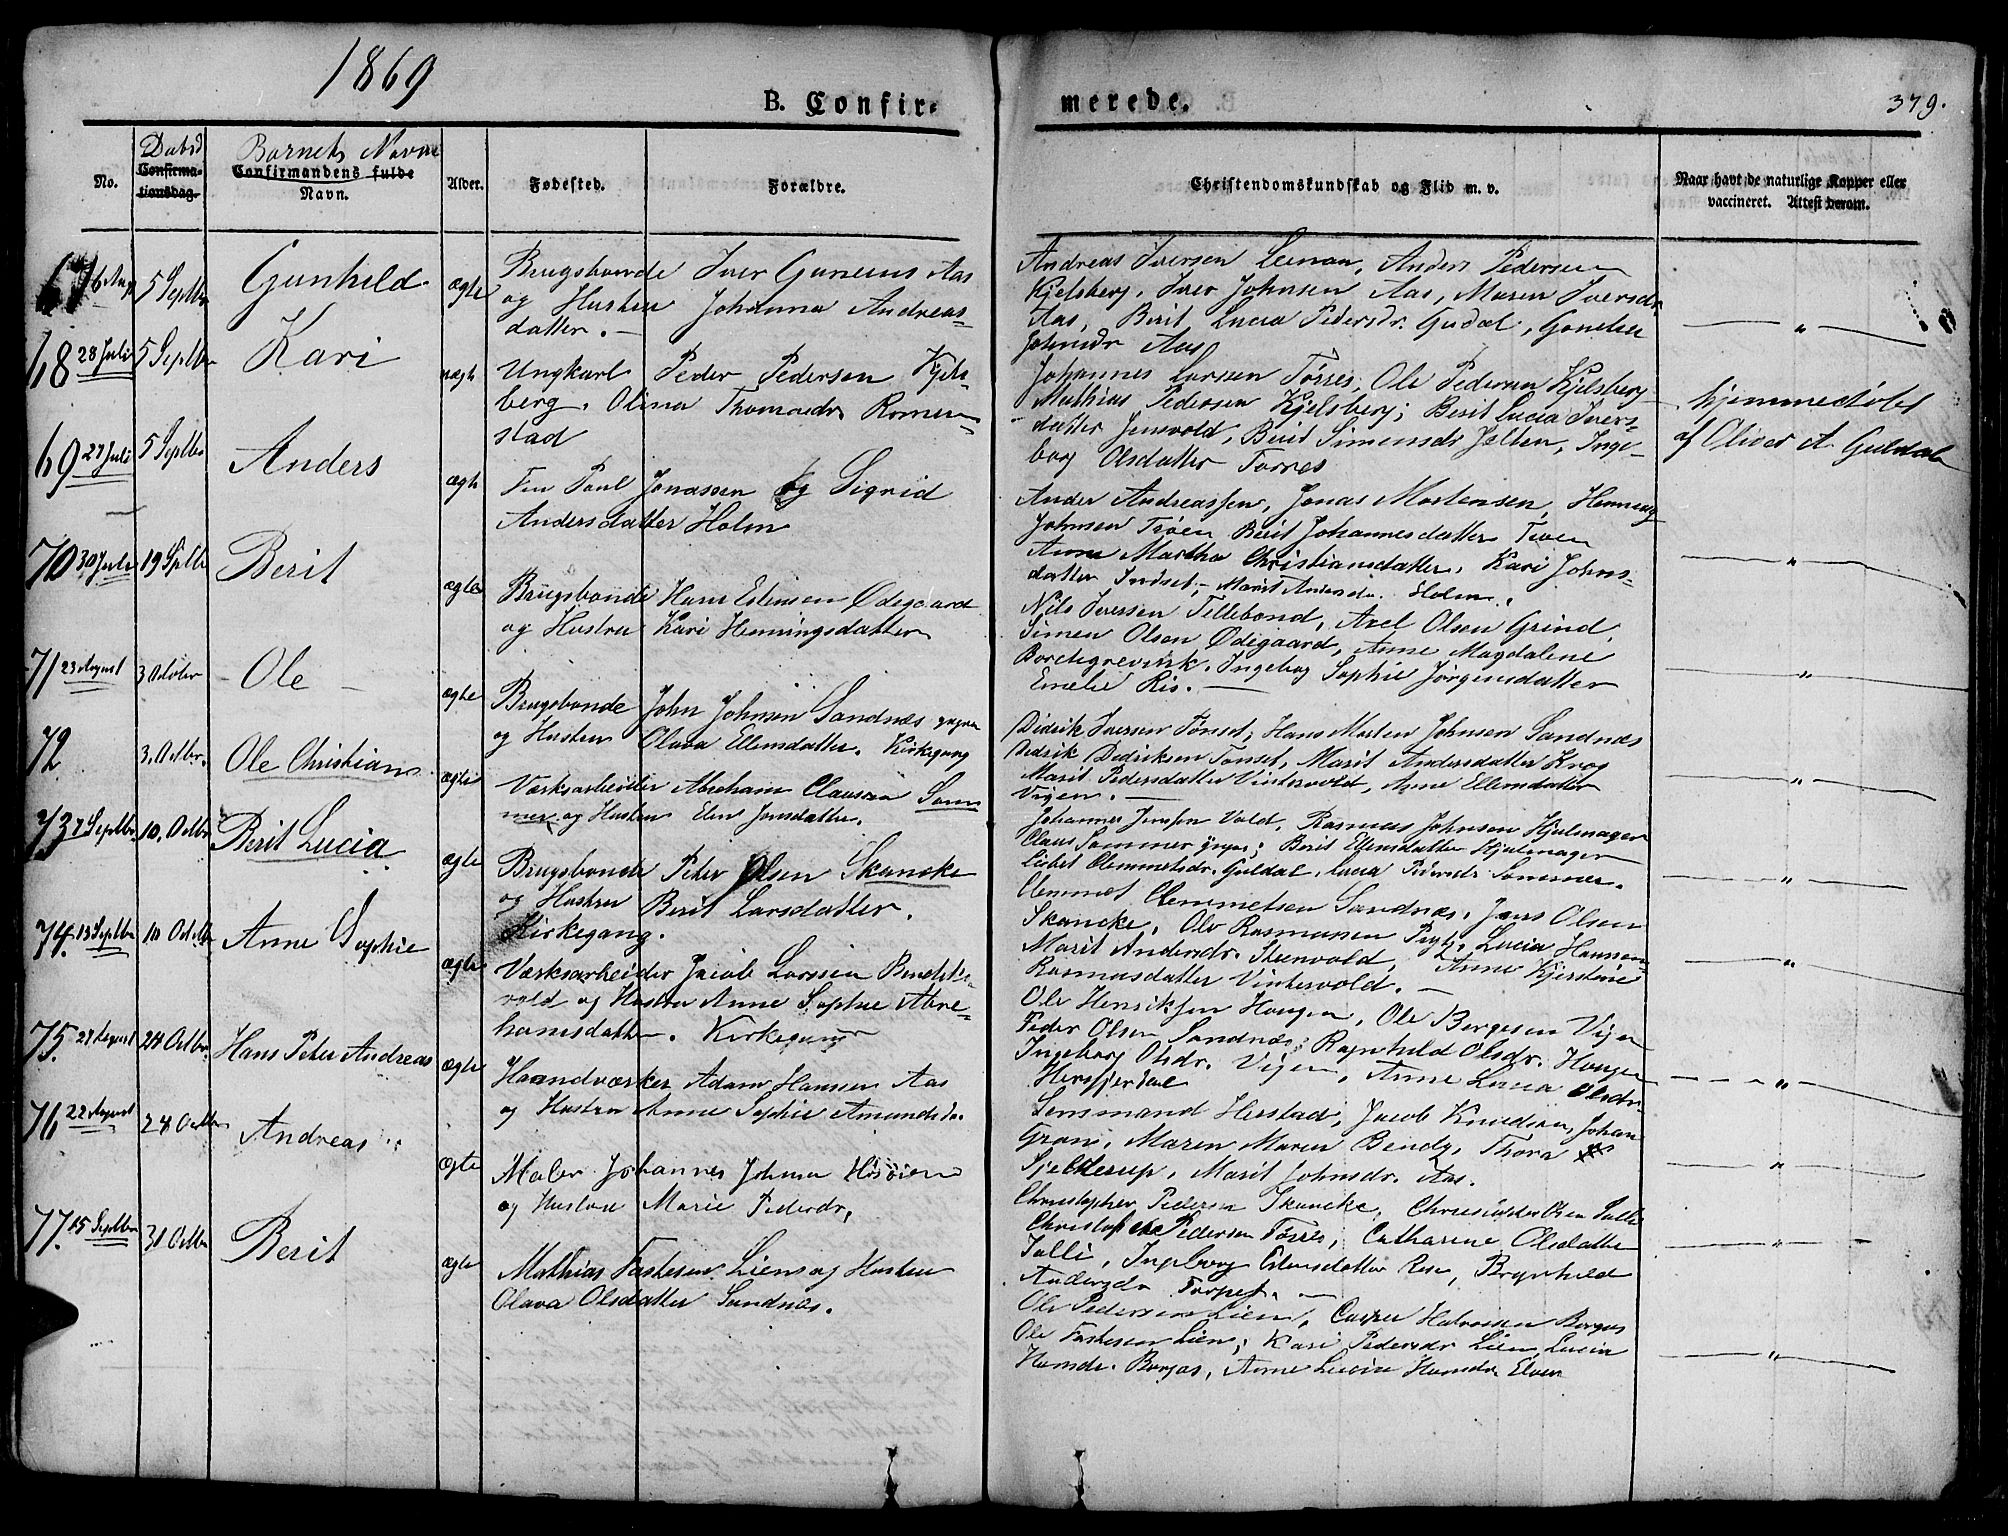 1869
B. Confir-
merede.
379.
No.
Dabsd
Confirma-
tionsdag.
Barnets Navn
Confirmandens fulde
Navn.
Alder.
Fødested.
Forældre.
Christendomskundskab og Flid m. v.
Naar havt de naturlige Kopper eller
vaccineret. Attest derom.
67 5 Septbr Gunhild ægte
Brugsbonde Iver Aas
og Hustru Johanna Andreas-
datter. —
Andreas Iversen Leman, Anders Pedersen
Kjelsberg, Iver Johnsen Aas, Maren Iversdr
Aas, Berit Lucia Pedersdr. Guldal,
Johnsdr Aas
— " —
68 28 Juli 5 Septbr Kari uægt
Ungkarl Peder Pedersen Kjels-
berg. Olina Thomasdr Romun-
stad
Johannes Larsen Tørres, Ole Pedersen Kjelsberg
Mathias Pedersen Kjelsberg; Berit Lucia Ivers-
datter Jensvold, Berit Simensdr Jolten, Inge-
borg Olsdatter Tørres
hjemmedøbt
af Oliver A Guldal
69 27 Juli 5 Septbr Anders ægte
Paul Jonassen og Sigrid
Andersdatter Holm
Andreassen, Jonas Mortensen, Henning
Johnsen Trøen Berit Johannesdatter Troen
Anne Martha Christiansdatter, Kari Johns-
datter Indset, Marit Andersdr. Holm.
— " —
70 30 Juli 19 Sptbr Berit ægte
Brugsbonde Hans Estensen Ødegaard
og Hustru Kari Henningsdatter
Nils Iverssen Tillebond, Axel Olsen Grind,
Simen Olsen Ødegaard, Anne Magdalene
Borchgrevink, Ingeborg Sophie Jørgensdatter
Emelie Ris. —
— " —
71 23 August 3 October - Ole - ægte
Brugsbonde John Johnsen Sandnæs
og Hustru Olava Ellensdatter. Kirkegang
Didrik Iversen Tønset, Hans Morten Johnsen Sandnæs
Didrik Didriksen Tønset, Marit Andersdatter Krog
Marit Pedersdatter Vintervold, Anne Ellensdatter
Vigen. —
— " —
72 3. Octbr. Ole Christian ægte
Værksarbeider Abraham Clausen Som-
mer og Hustru Elen Jonsdatter.
Johannes Jenssen Vold, Rasmus Johnsen Hjulmager
Claus Sommer; Berit Ellensdatter Hjulmager
Clemmetsdr. Guldal, Lucia Pedersdr Sommer.
— " —
73 7 Septbr 10. Octbr Berit Lucia ægte
Brugsbonde Peter Olsen Skancke
og Hustru Berit Larsdatter.
Kirkegang.
Clemmet Clemmetsen Sandnæs, Jens Olsen
Skancke, Ole Rasmusen Prytz, Lucia Hansen
Marit Andersdr. Stenvold, Anne Kjerstine
Rasmusdatter Vintervold. —
— " —
74. 13 Septbr 10 Octbr Anne Sophie ægte
Værksarbeider Jacob Larssen Bendts-
vold og Hustru Anne Sophie Abra-
hamsdatter. Kirkegang
Ole Henriksen Hougen, Ole Borgesen Vigen
Peder Olsen Sandnæs, Ragnhild Olsdr. Hougen
Ingeborg Olsdr. Vigen, Anne Lucia Olsdr.
Hersjerdal
— " —
75. 27 August 24 Octbr. Hans Peter Andreas ægte
Haandværker Adam Hansen Aas
og Hustru Anne Sophie Amundsdr.
Lensmand Herstad, Jacob Knudsen, Johan
Gran, Maren Maren Bendz, Thora
Sjelderup, Marit Johnsdr. Aas.
— " —
76 22 August 24 Octbr Andreas ægte
Maler Johannes Johnsen
og Hustru Marie Pedersdr.
Christopher Pedersen Skancke, Olsen Salli
Christopher Pedersen Tørres, Catharine Olsdatter
Salli, Ingeborg Estensdatter Ree, Brynhild
Andersdr Torpet. —
— " —
77. 15 Septbr 31 Octbr Berit ægte
Mathias Fastesen Lien og Hustru
Olava Olsdatter Sandnæs.
Ole Pedersen Lien, Casper Halvorsen Borgas
Ole Fastesen Lien; Kari Pedersdr Lien, Lucia
Hansdr. Borgas, Anne Lucia Hansdr. Elven
— " —